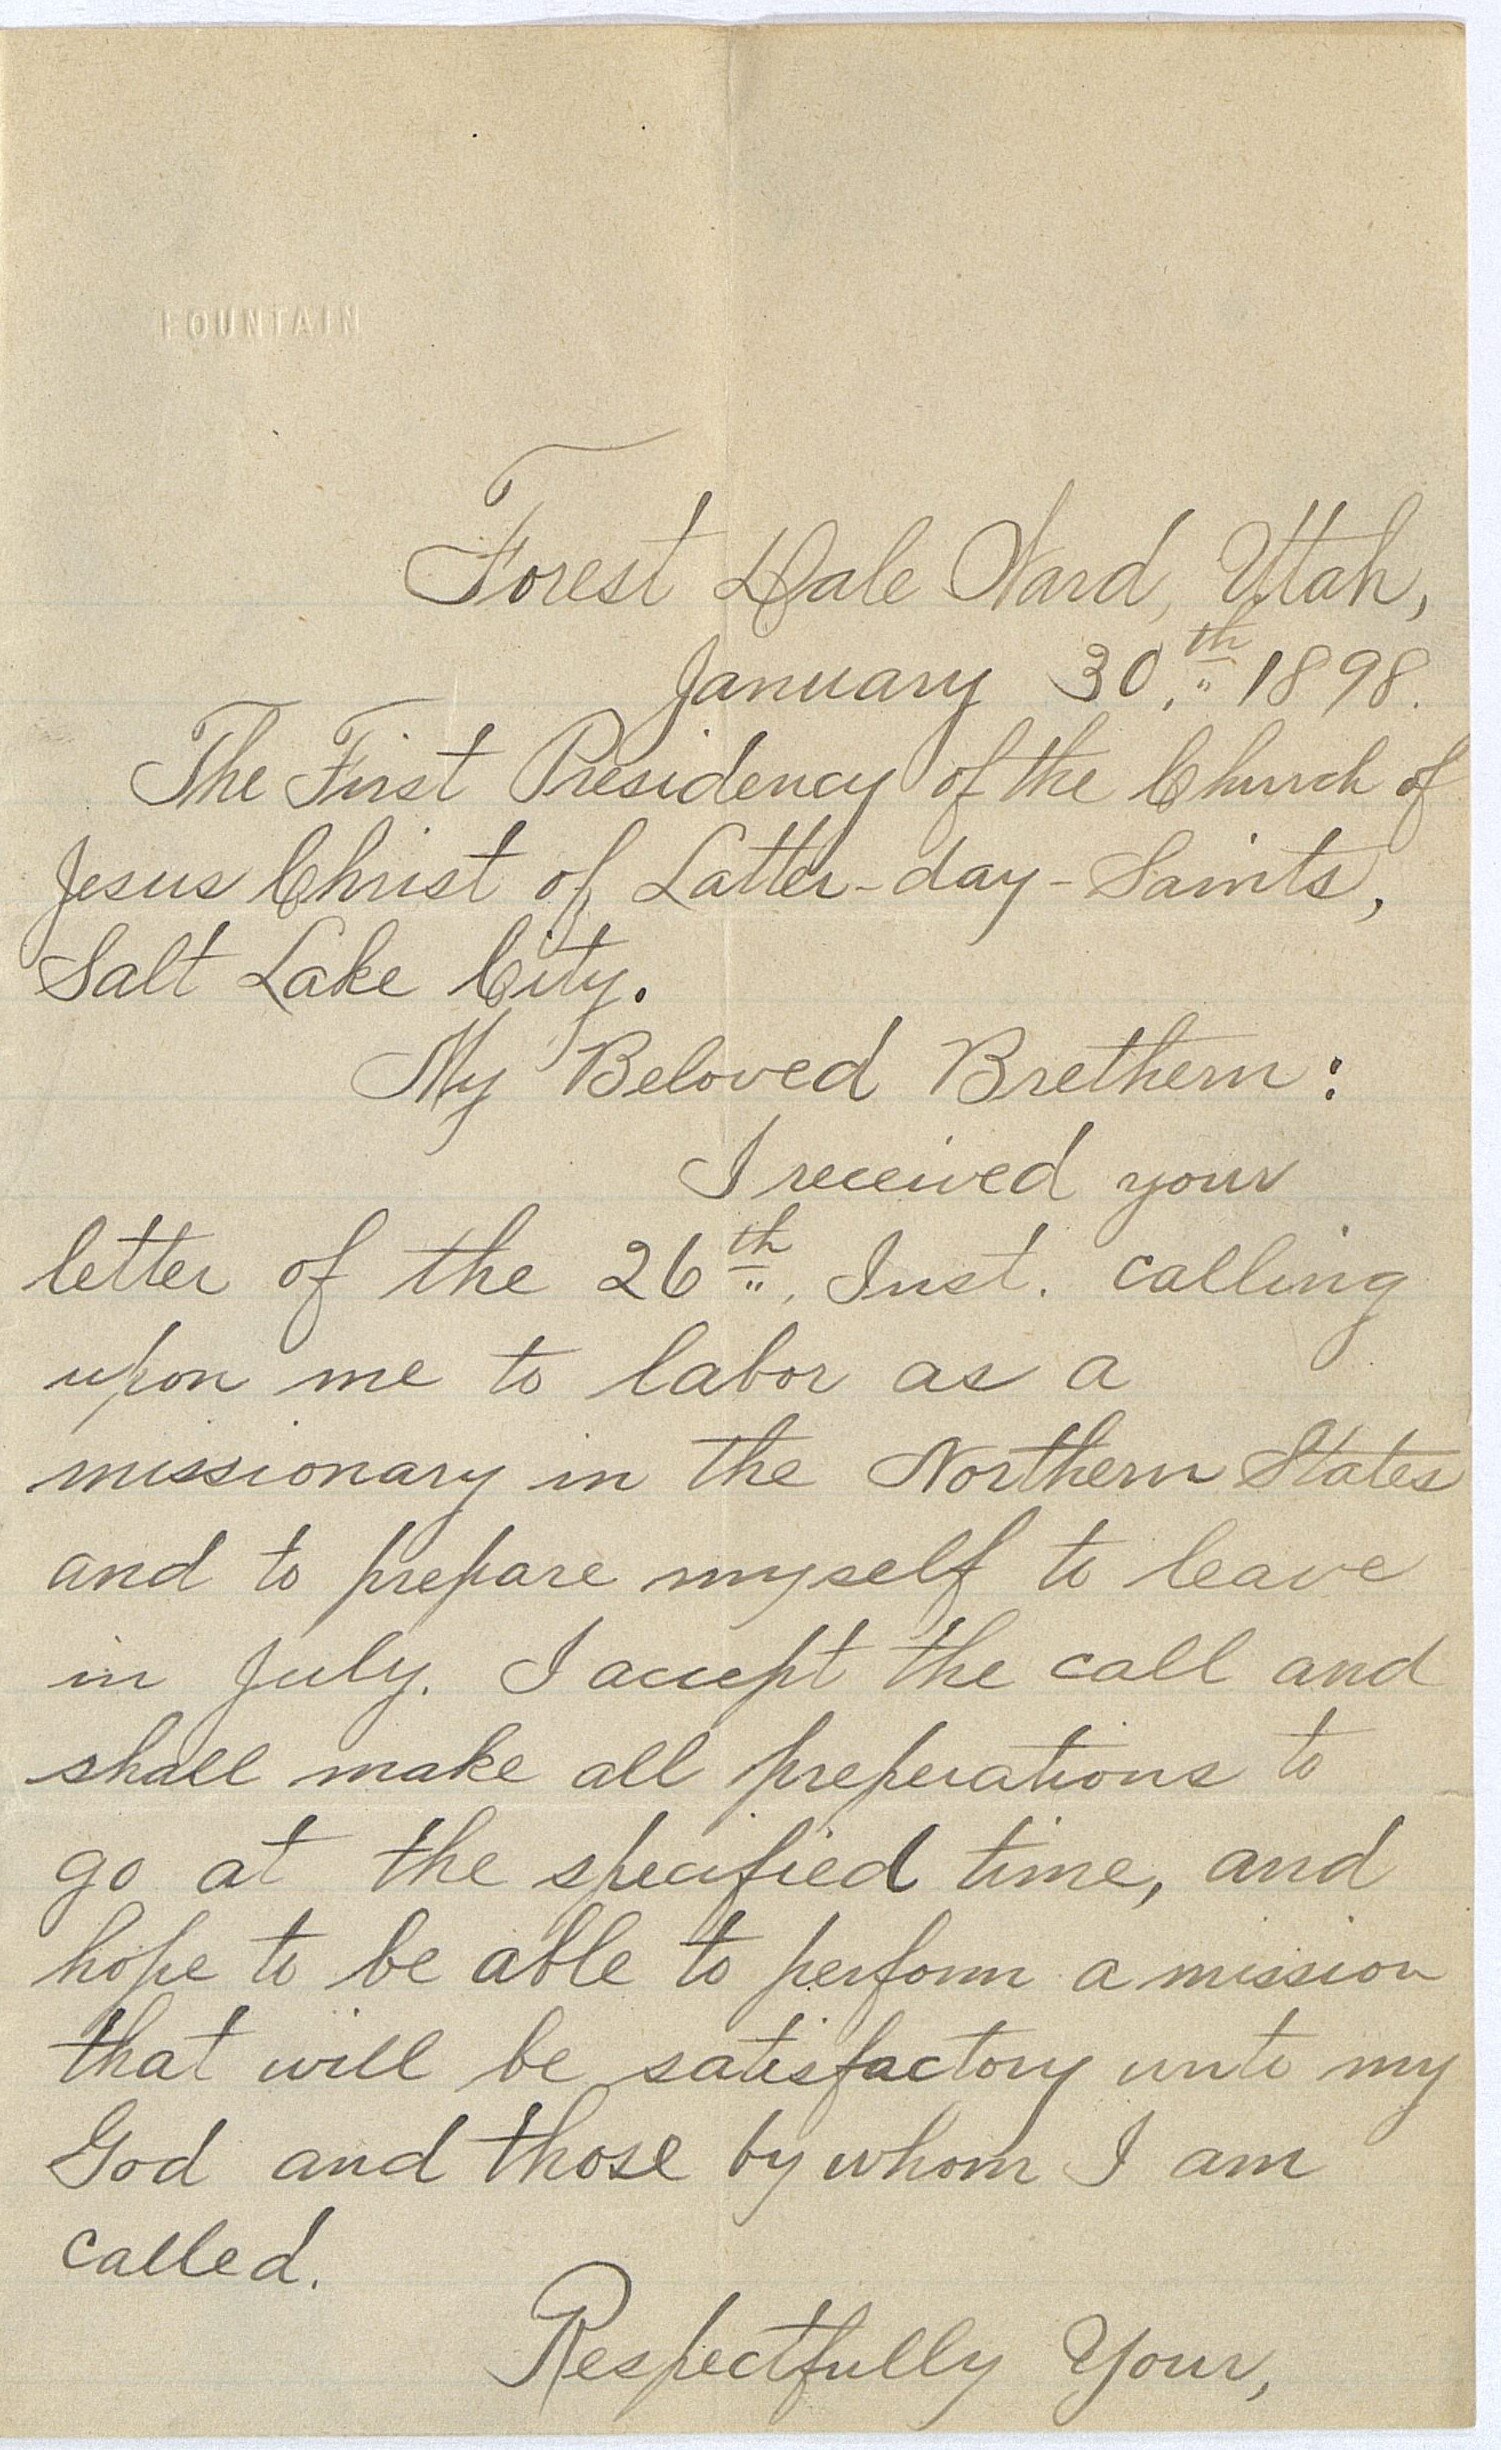 FOUNTAIN
Forest Dale Ward, Utah,
January 30,th 1898.
The First Presidency of the Church of
Jesus Christ of Latter-day-Saints,
Salt Lake City.
My Beloved Brethern:
I received your
letter of the 26th, Inst. calling
upon me to labor as a
missionary in the Northern States
and to prepare myself to leave
in July. I accept the call and
shall make all preperations to
go at the specified time, and
hope to be able to perform a mission
that will be satisfactory unto my
God and those by whom I am
called.
Respectfully Your,